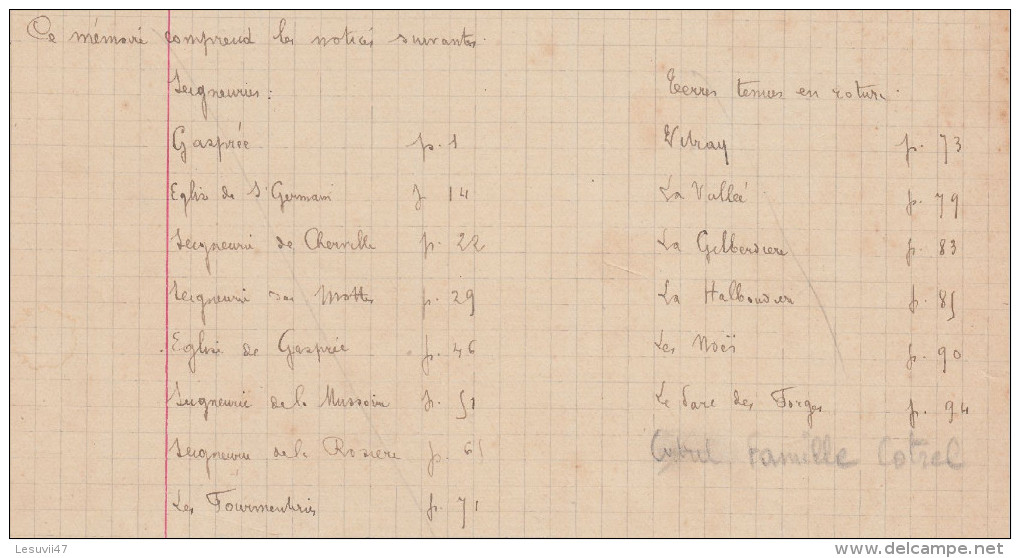 Ce mémoire comprend les notices suivantes.
Seigneuries :
Gasprée p. 1
Eglise de St Germain p 14
Seigneurie de Cherville p. 22
Seigneurie des Mottes p. 29
Eglise de Gasprée p. 46
Seigneurie de la p. 51
Seigneurie de la Rosiere p. 65
Les Tourmenteries p. 71
Terres tenues en roture.
Vitray p. 73
La Vallée p. 79
La Gelberdiere p. 83
La p. 85
Les Noës p. 90
Le des Forges p. 94
Famille Cotrel
Lesuvii47
www.delcampe.net